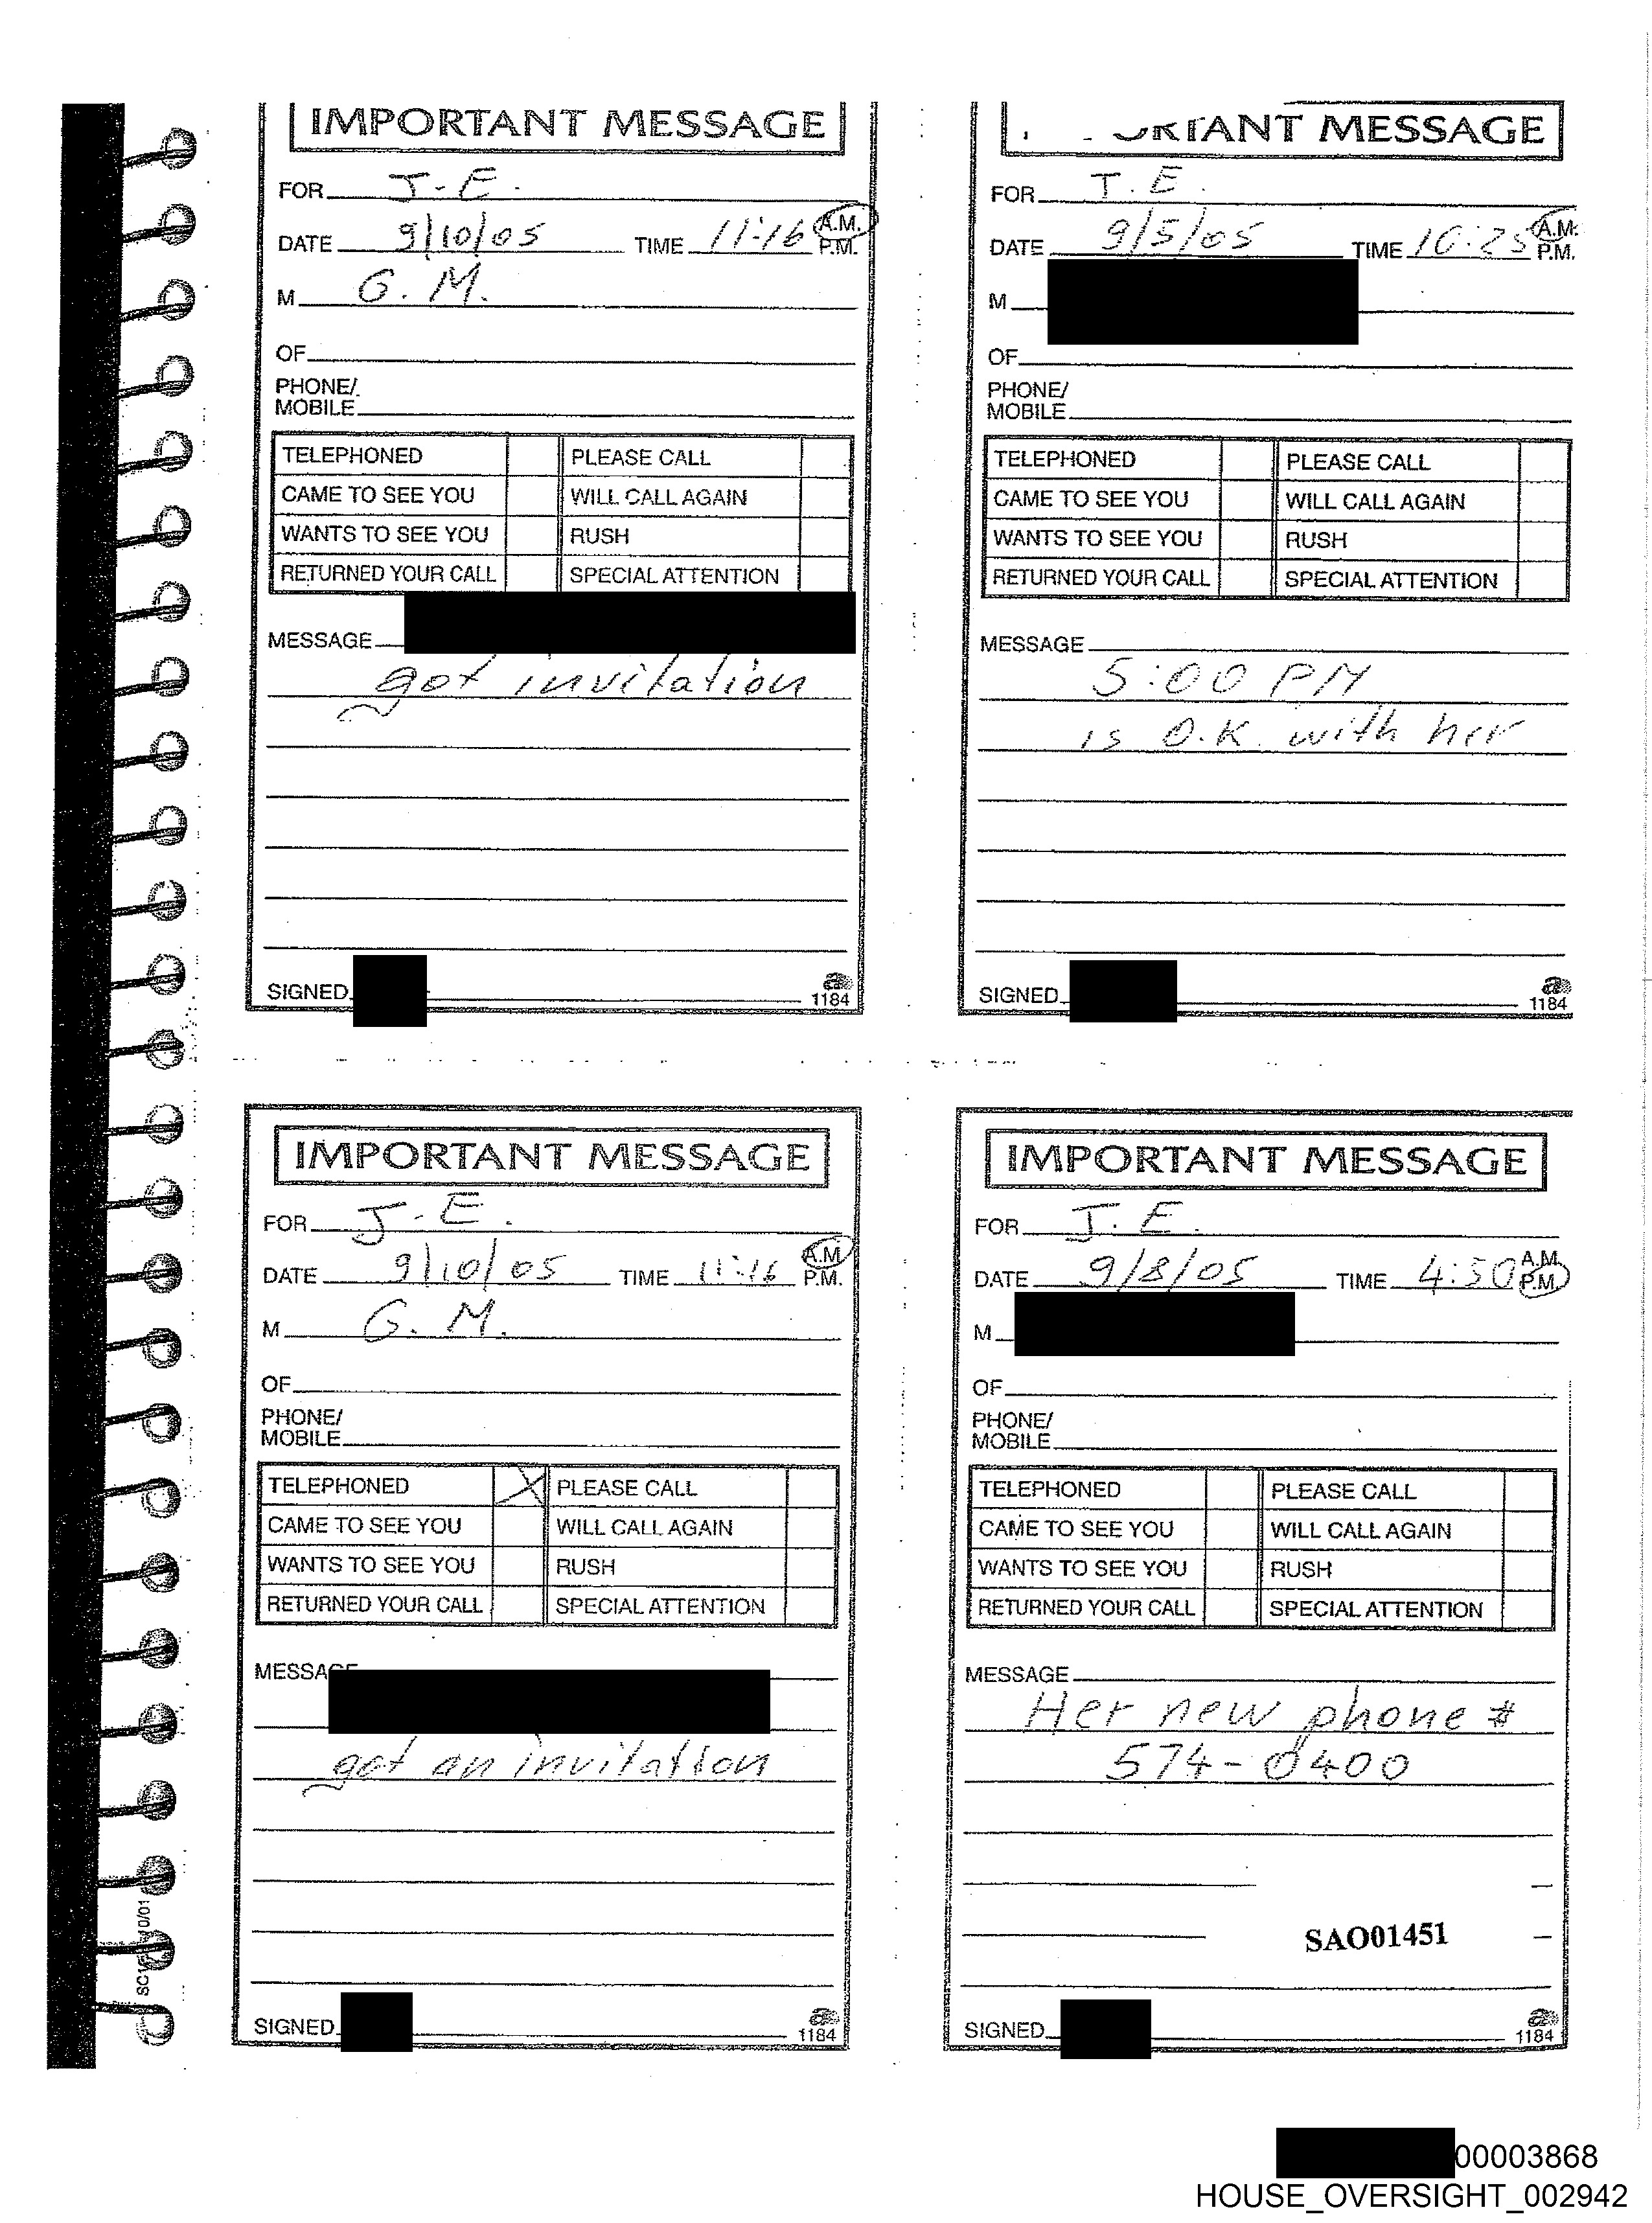 IMPORTANT MESSAGE
FOR J.E.
DATE 9/10/05 TIME 11:16 A.M. P.M.
M G.M.
OF
PHONE/
MOBILE
TELEPHONED PLEASE CALL
CAME TO SEE YOU WILL CALL AGAIN
WANTS TO SEE YOU RUSH
RETURNED YOUR CALL SPECIAL ATTENTION
MESSAGE
got invitation
SIGNED
1184
MESSAGE
FOR J.E.
DATE 9/5/05 TIME 10:25 A.M. P.M.
M
OF
PHONE/
MOBILE
TELEPHONED PLEASE CALL
CAME TO SEE YOU WILL CALL AGAIN
WANTS TO SEE YOU RUSH
RETURNED YOUR CALL SPECIAL ATTENTION
MESSAGE
5:00 PM
is O.K. with her
SIGNED
1184
IMPORTANT MESSAGE
FOR J.E.
DATE 9/10/05 TIME 11:16 A.M. P.M.
M G.M.
OF
PHONE/
MOBILE
TELEPHONED X PLEASE CALL
CAME TO SEE YOU WILL CALL AGAIN
WANTS TO SEE YOU RUSH
RETURNED YOUR CALL SPECIAL ATTENTION
MESSAGE
got an invitation
SIGNED
1184
IMPORTANT MESSAGE
FOR J.E.
DATE 9/8/05 TIME 4:50 A.M. P.M.
M
OF
PHONE/
MOBILE
TELEPHONED PLEASE CALL
CAME TO SEE YOU WILL CALL AGAIN
WANTS TO SEE YOU RUSH
RETURNED YOUR CALL SPECIAL ATTENTION
MESSAGE
Her new phone #
574-0400
SAO01451
SIGNED
1184
00003868
HOUSE_OVERSIGHT_002942